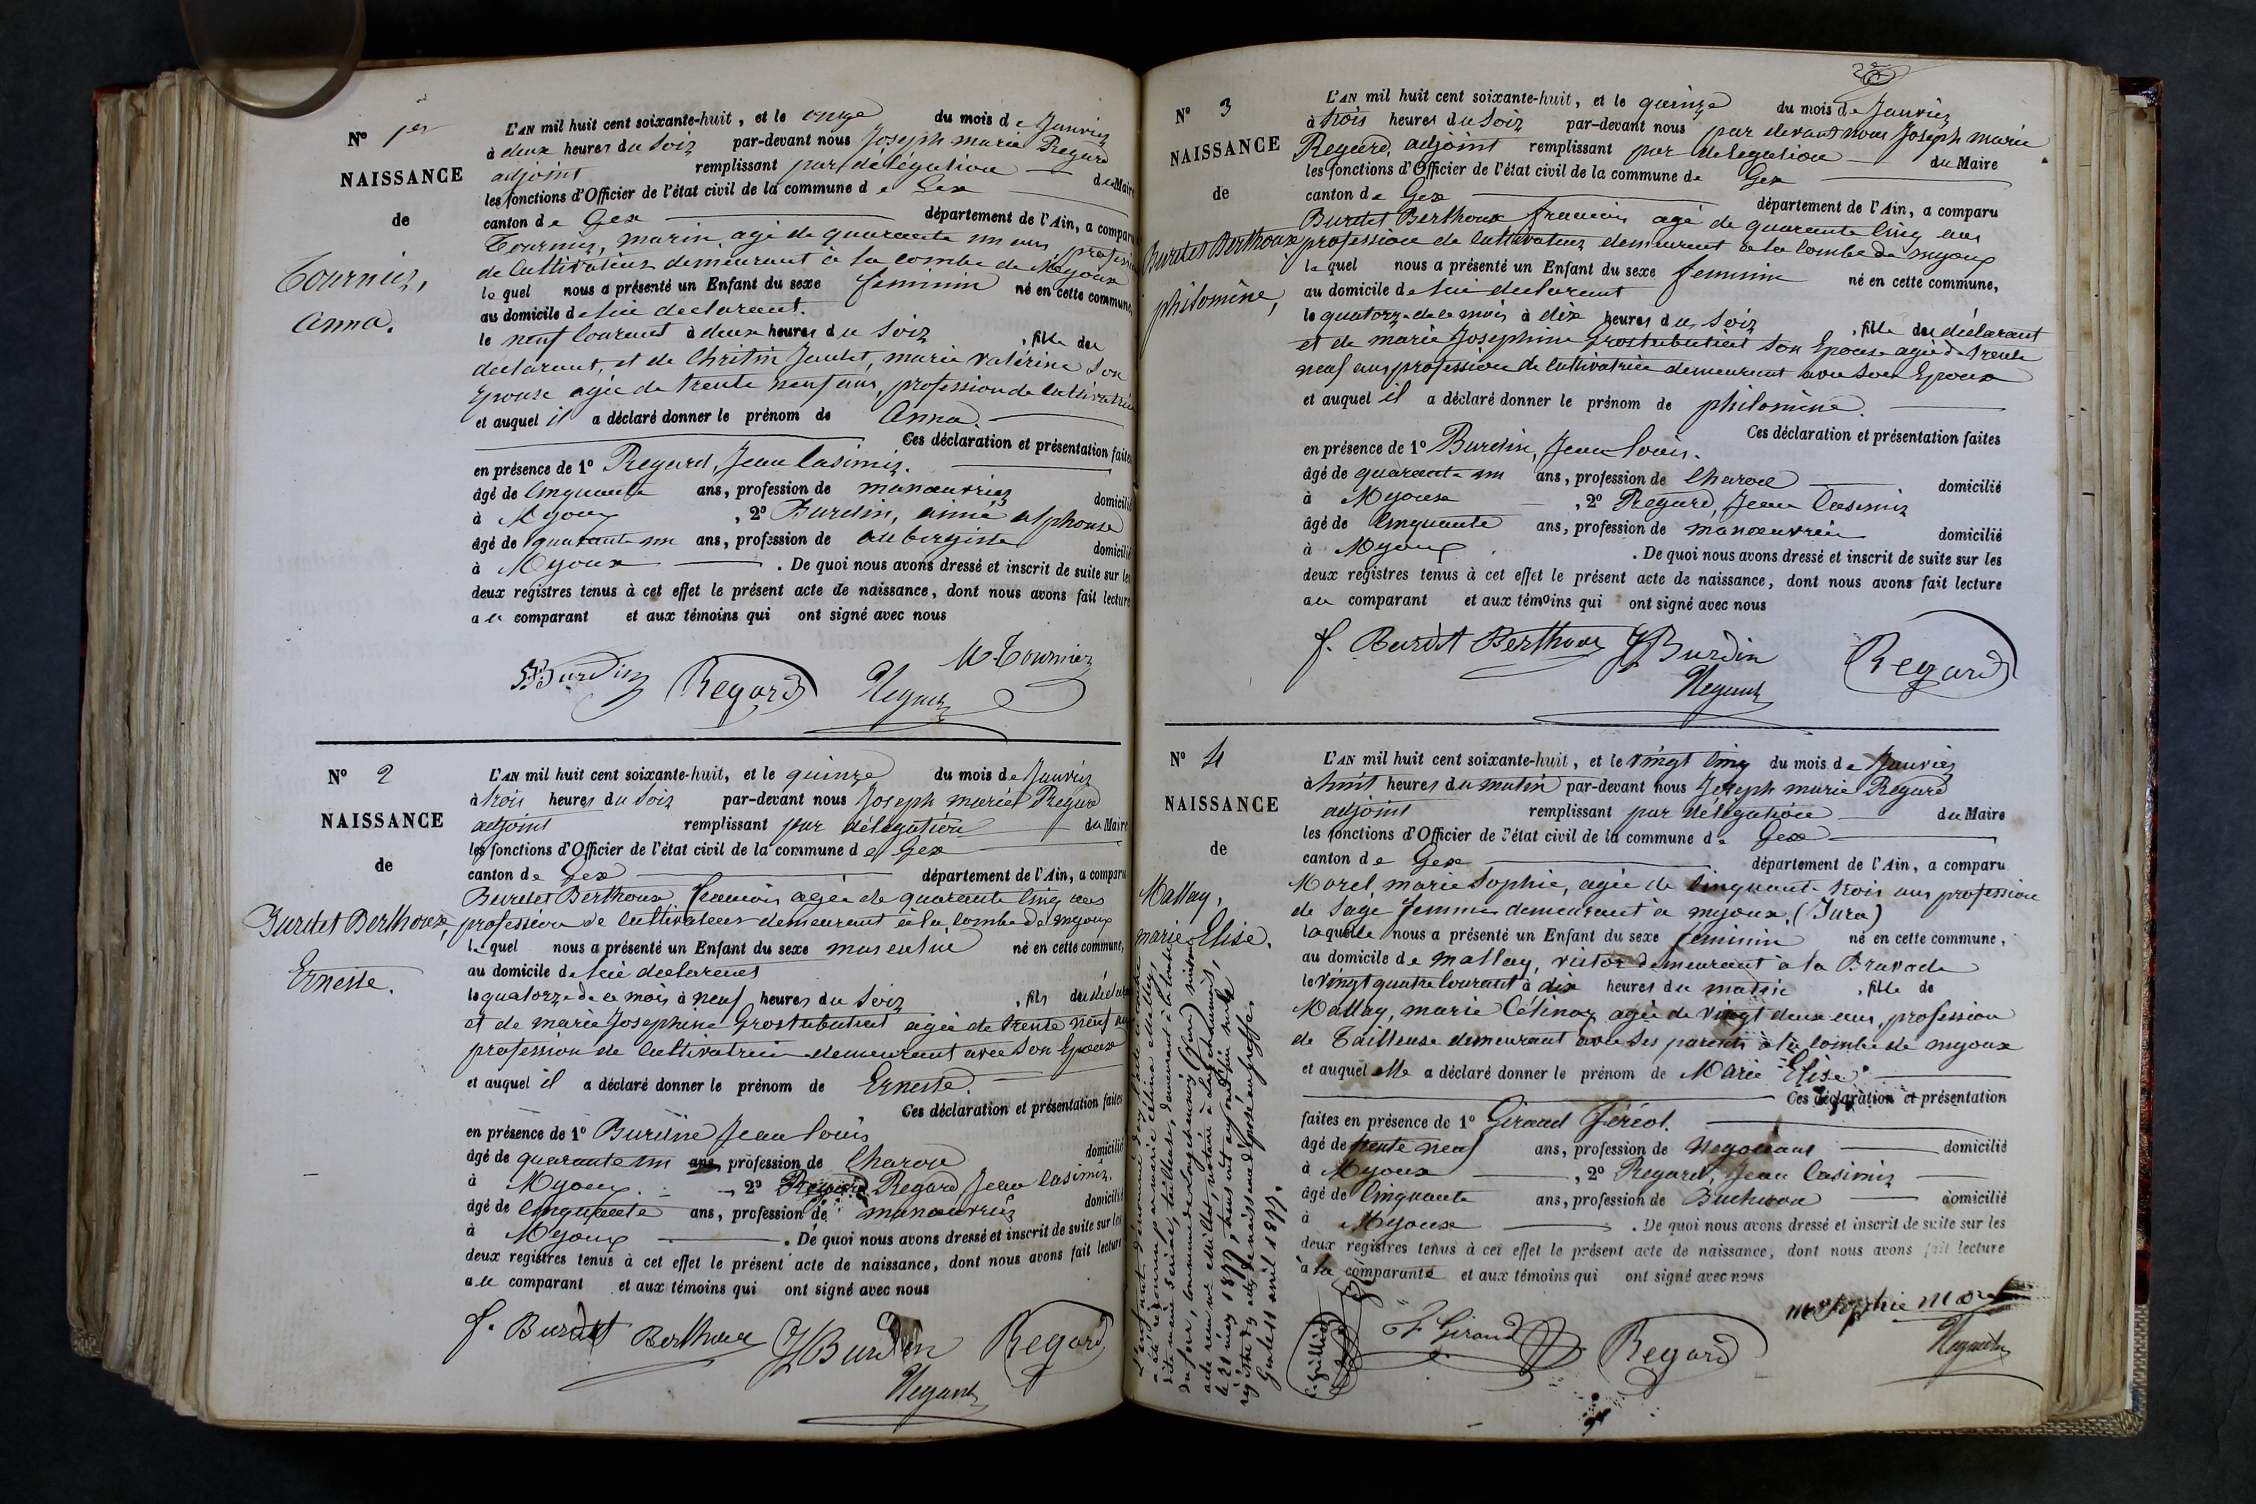 N° 1er
NAISSANCE
de
Tournier,
Anna.
L'AN mil huit cent soixante-huit, et le onze du mois de Janvier
à deux heures du Soir par-devant nous Joseph marie Regard
adjoint remplissant par délégation du Maire
les fonctions d'Officier de l'état civil de la commune de Gex
canton de Gex département de l'Ain, a comparu
Tournier, marin, agé de quarante un ans, profession
de Cultivateur demeurant à la combe de Mijoux
lequel nous a présenté un Enfant du sexe féminin né en cette commune,
au domicile de lui declarant.
le neuf Courant à deux heures du Soir, fille du
declarant, et de Christin Jaulet, marie valérine Son
Epouse agée de trente neuf ans, profession de Cultivatrice
et auquel il a déclaré donner le prénom de Anna.
Ces déclaration et présentation faites
en présence de 1° Regard, Jean Casimir.
âgé de Cinquante ans, profession de manoeuvrier domicilié
à Mijoux, 2° Burdin, aimé alphonse
âgé de quarante un ans, profession de aubergiste domicilié
à Mijoux. De quoi nous avons dressé et inscrit de suite sur les
deux registres tenus à cet effet le présent acte de naissance, dont nous avons fait lecture
au comparant et aux témoins qui ont signé avec nous
M Tournier
Burdin Regard Regard
N° 2
NAISSANCE
de
Burdet Berthoux,
Erneste.
L'AN mil huit cent soixante-huit, et le quinze du mois de Janvier
à trois heures du Soir par-devant nous Joseph marie Regard
adjoint remplissant par délégation du Maire
les fonctions d'Officier de l'état civil de la commune de Gex
canton de Gex département de l'Ain, a comparu
Burdet Berthoux francois agée de quarante Cinq ans
profession de Cultivateur demeurant à la Combe de mijoux
lequel nous a présenté un Enfant du sexe masculin né en cette commune,
au domicile de lui declarent
le quatorze de ce mois à neuf heures du Soir, fils du déclarant
et de marie Josephine Grostabutient agée de trente neuf ans
profession de Cultivatrice demeurent avec Son Epoux
et auquel il a déclaré donner le prénom de Erneste.
Ces déclaration et présentation faites
en présence de 1° Burdin Jean Louis
âgé de quarante un ans, profession de Charon domicilié
à Mijoux, 2° Regard Regard, Jean Casimir.
âgé de Cinquante ans, profession de manoeuvrier domicilié
à Mijoux. De quoi nous avons dressé et inscrit de suite sur les
deux registres tenus à cet effet le présent acte de naissance, dont nous avons fait lecture
au comparant et aux témoins qui ont signé avec nous
f. Burdet Berthoux J Burdin Regard
Regard
N° 3
NAISSANCE
de
Burdet Berthoux
philomène,
L'AN mil huit cent soixante-huit, et le quinze du mois de Janvier
à trois heures du Soir par-devant nous par devant nous Joseph marie
Regard, adjoint remplissant par délégation du Maire
les fonctions d'Officier de l'état civil de la commune de Gex
canton de Gex département de l'Ain, a comparu
Burdet Berthoux francois agé de quarante Cinq ans
profession de Cultivateur demeurent à la Combe de mijoux
lequel nous a présenté un Enfant du sexe feminin né en cette commune,
au domicile de lui declarent
le quatorze de ce mois à dix heures du Soir, fille du déclarant
et de marie Josephine Grostabutient Son Epouse agée de trente
neuf ans profession de Cultivatrice demeurent avec Son Epoux
et auquel il a déclaré donner le prénom de philomène.
Ces déclaration et présentation faites
en présence de 1° Burdin, Jean Louis.
âgé de quarante un ans, profession de Charon domicilié
à Mijoux, 2° Regard, Jean Casimir
âgé de Cinquante ans, profession de manoeuvrier domicilié
à Mijoux. De quoi nous avons dressé et inscrit de suite sur les
deux registres tenus à cet effet le présent acte de naissance, dont nous avons fait lecture
au comparant et aux témoins qui ont signé avec nous
f. Burdet Berthoux J Burdin Regard
Regard
N° 4
NAISSANCE
de
Mallay,
marie Elise.
L'AN mil huit cent soixante-huit, et le vingt Cinq du mois de Janvier
à huit heures du matin par-devant nous Joseph marie Regard
adjoint remplissant par délégation du Maire
les fonctions d'Officier de l'état civil de la commune de Gex
canton de Gex département de l'Ain, a comparu
Morel, marie Sophie, agée de Cinquante trois ans profession
de Sage femme demeurant à mijoux. (Jura)
laquelle nous a présenté un Enfant du sexe féminin né en cette commune,
au domicile de Mallay, victor demeurant à la Bravade
le vingt quatre Courant à dix heures du matin, fille de
Mallay, marie Célina, agée de vingt deux ans, profession
de Tailleuse demeurant avec Ses parents à la Combe de mijoux
et auquel elle a déclaré donner le prénom de Marie Elise.
Ces déclaration et présentation
faites en présence de 1° Giraud Féréol.
âgé de trente neuf ans, profession de Negociant domicilié
à Mijoux, 2° Regard, Jean Casimir
âgé de Cinquante ans, profession de Bucheron domicilié
à Mijoux. De quoi nous avons dressé et inscrit de suite sur les
deux registres tenus à cet effet le présent acte de naissance, dont nous avons fait lecture
à la comparante et aux témoins qui ont signé avec nous
m Sophie Morel
F Giraud Regard Regard
L'enfant dénommé dans l'acte ci-contre
a été reconnu par marie célina Mallay,
du Jura, commune de Longchaumois
acte reçu
le 21 mars 1877
Gex le 28 avril 1877.